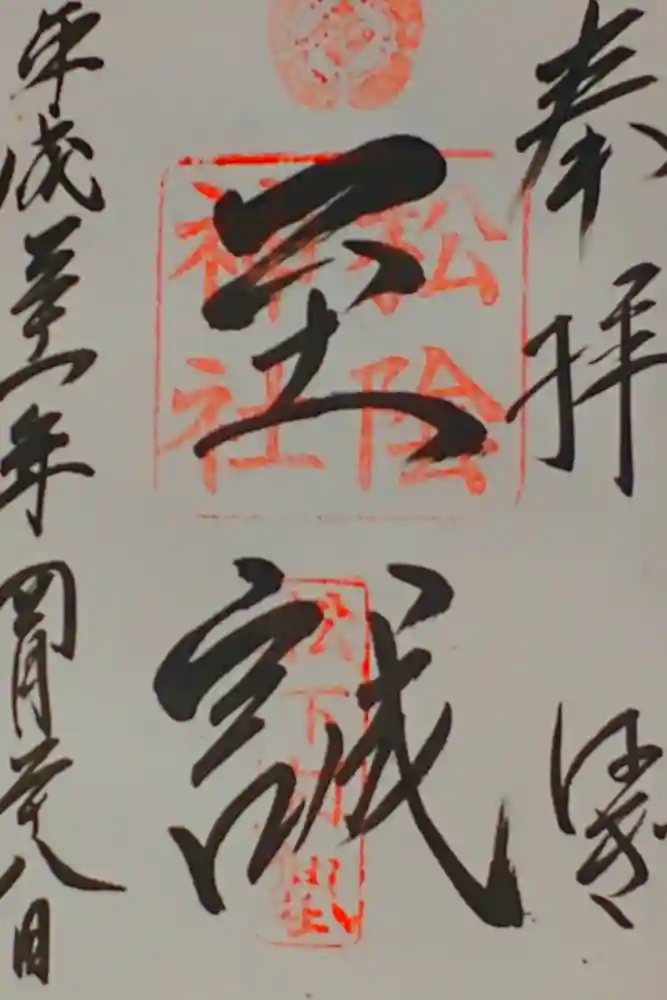 奉拝
至誠
松陰
神社
松下村塾
平成卅一年四月廿八日